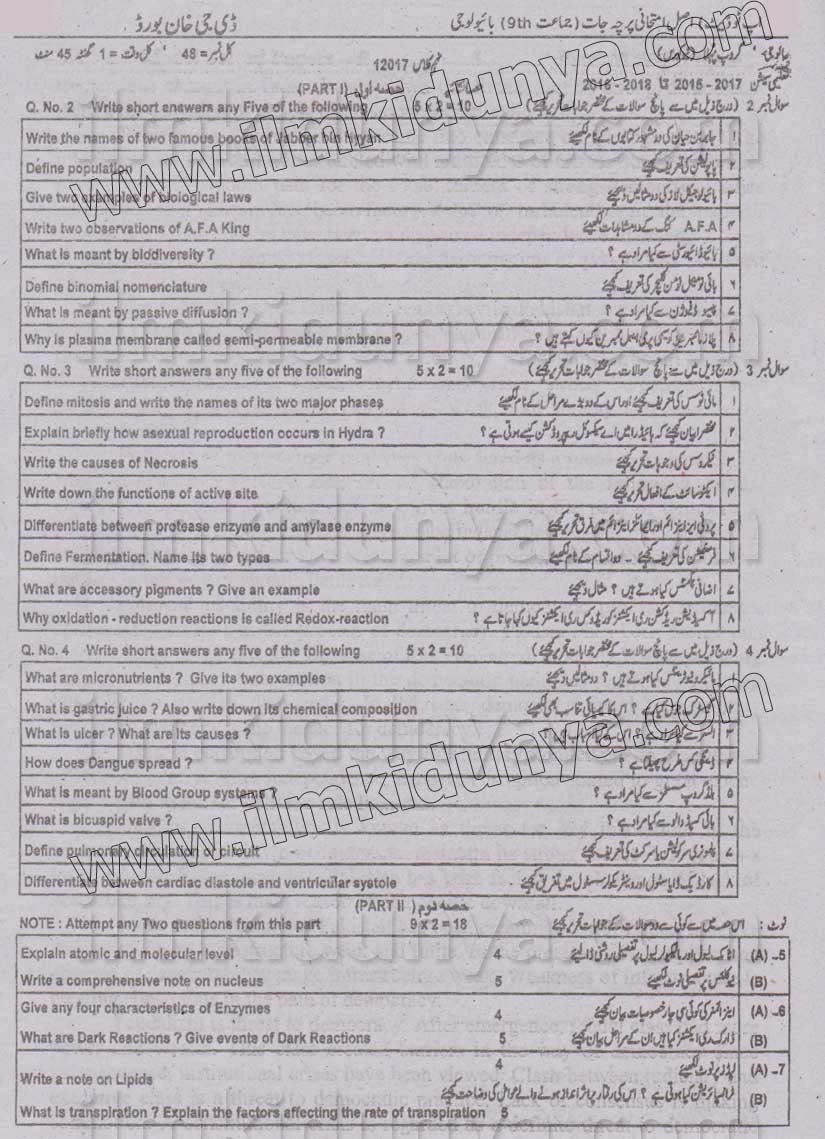 ڈی جی خان بورڈ
پرچہ جات (جماعت 9th) بائیولوجی
کل نمبر = 48 ' کل وقت = 1 گھنٹہ 45 منٹ
12017
(PART I) حصہ اول
2016 - 2018 تا 2015 - 2017
Q. No. 2 Write short answers any Five of the following 5 x 2 = 10 (درج ذیل میں سے پانچ سوالات کے مختصر جوابات تحریر کیجئے) سوال نمبر 2
Write the names of two famous books of Jabber bin Hyyan جابر بن حیان کی دو مشہور کتابوں کے نام لکھیئے ۱
Define population پاپولیشن کی تعریف کیجئے ۲
Give two examples of biological laws بائیولوجیکل لاز کی دو مثالیں دیجئے ۳
Write two observations of A.F.A King A.F.A کنگ کے دو مشاہدات لکھیئے ۴
What is meant by biodiversity ? بائیوڈائیورسٹی سے کیا مراد ہے ؟ ۵
Define binomial nomenclature بائی نومیئل نومن کلیچر کی تعریف کیجئے ۶
What is meant by passive diffusion ? پیسو ڈفیوژن سے کیا مراد ہے ؟ ۷
Why is plasma membrane called semi-permeable membrane ? پلازما ممبرین کو سیمی پرمی ایبل ممبرین کیوں کہتے ہیں ؟ ۸
Q. No. 3 Write short answers any five of the following 5 x 2 = 10 (درج ذیل میں سے پانچ سوالات کے مختصر جوابات تحریر کیجئے) سوال نمبر 3
Define mitosis and write the names of its two major phases مائی ٹوسس کی تعریف کیجئے اور اس کے دو بڑے مراحل کے نام لکھیئے ۱
Explain briefly how asexual reproduction occurs in Hydra ? مختصراً بیان کیجئے کہ ہائیڈرا میں اے سیکسوئل ریپروڈکشن کیسے ہوتی ہے ؟ ۲
Write the causes of Necrosis نیکروسس کی وجوہات تحریر کیجئے ۳
Write down the functions of active site ایکٹو سائٹ کے افعال تحریر کیجئے ۴
Differentiate between protease enzyme and amylase enzyme پروٹی ایز اینزائم اور ایمائلیز اینزائم میں فرق تحریر کیجئے ۵
Define Fermentation. Name its two types فرمنٹیشن کی تعریف کیجئے - دو اقسام کے نام لکھیئے ۶
What are accessory pigments ? Give an example اضافی پگمنٹس کیا ہوتے ہیں ؟ مثال دیجئے ۷
Why oxidation - reduction reactions is called Redox-reaction ? آکسیڈیشن ریڈکشن ری ایکشنز کو ریڈوکس ری ایکشنز کیوں کہا جاتا ہے ؟ ۸
Q. No. 4 Write short answers any five of the following 5 x 2 = 10 (درج ذیل میں سے پانچ سوالات کے مختصر جوابات تحریر کیجئے) سوال نمبر 4
What are micronutrients ? Give its two examples مائیکرونیوٹرینٹس کیا ہوتے ہیں ؟ دو مثالیں دیجئے ۱
What is gastric juice ? Also write down its chemical composition ؟ اس کا کیمیائی تناسب بھی لکھیئے ۲
What is ulcer ? What are its causes ? ۳
How does Dangue spread ? ڈینگی کس طرح پھیلتا ہے ؟ ۴
What is meant by Blood Group systems ? بلڈ گروپ سسٹمز سے کیا مراد ہے ؟ ۵
What is bicuspid valve ? بائی کسپڈ والو سے کیا مراد ہے ؟ ۶
Define pulmonary circulation or circuit پلمونری سرکولیشن یا سرکٹ کی تعریف کیجئے ۷
Differentiate between cardiac diastole and ventricular systole کارڈیک ڈایاسٹول اور وینٹریکولر سسٹول میں تفریق کیجئے ۸
(PART II) حصہ دوم
NOTE : Attempt any Two questions from this part 9 x 2 = 18 اس حصہ میں سے کوئی سے دو سوالات کے جوابات تحریر کیجئے نوٹ :
Explain atomic and molecular level 4 اٹامک لیول اور مالیکیولر لیول پر تفصیلی روشنی ڈالیے (A) -5
Write a comprehensive note on nucleus 5 نیوکلئس پر تفصیلی نوٹ لکھیئے (B)
Give any four characteristics of Enzymes 4 اینزائمز کی کوئی سی چار خصوصیات بیان کیجئے (A) -6
What are Dark Reactions ? Give events of Dark Reactions 5 ڈارک ری ایکشنز کیا ہیں ان کے مراحل بیان کیجئے (B)
Write a note on Lipids 4 لپڈز پر نوٹ لکھیئے (A) -7
What is transpiration ? Explain the factors affecting the rate of transpiration 5 ٹرانسپائریشن کیا ہوتی ہے ؟ اس کی رفتار پر اثر انداز ہونے والے عوامل کی وضاحت کیجئے (B)
www.ilmkidunya.com
www.ilmkidunya.com